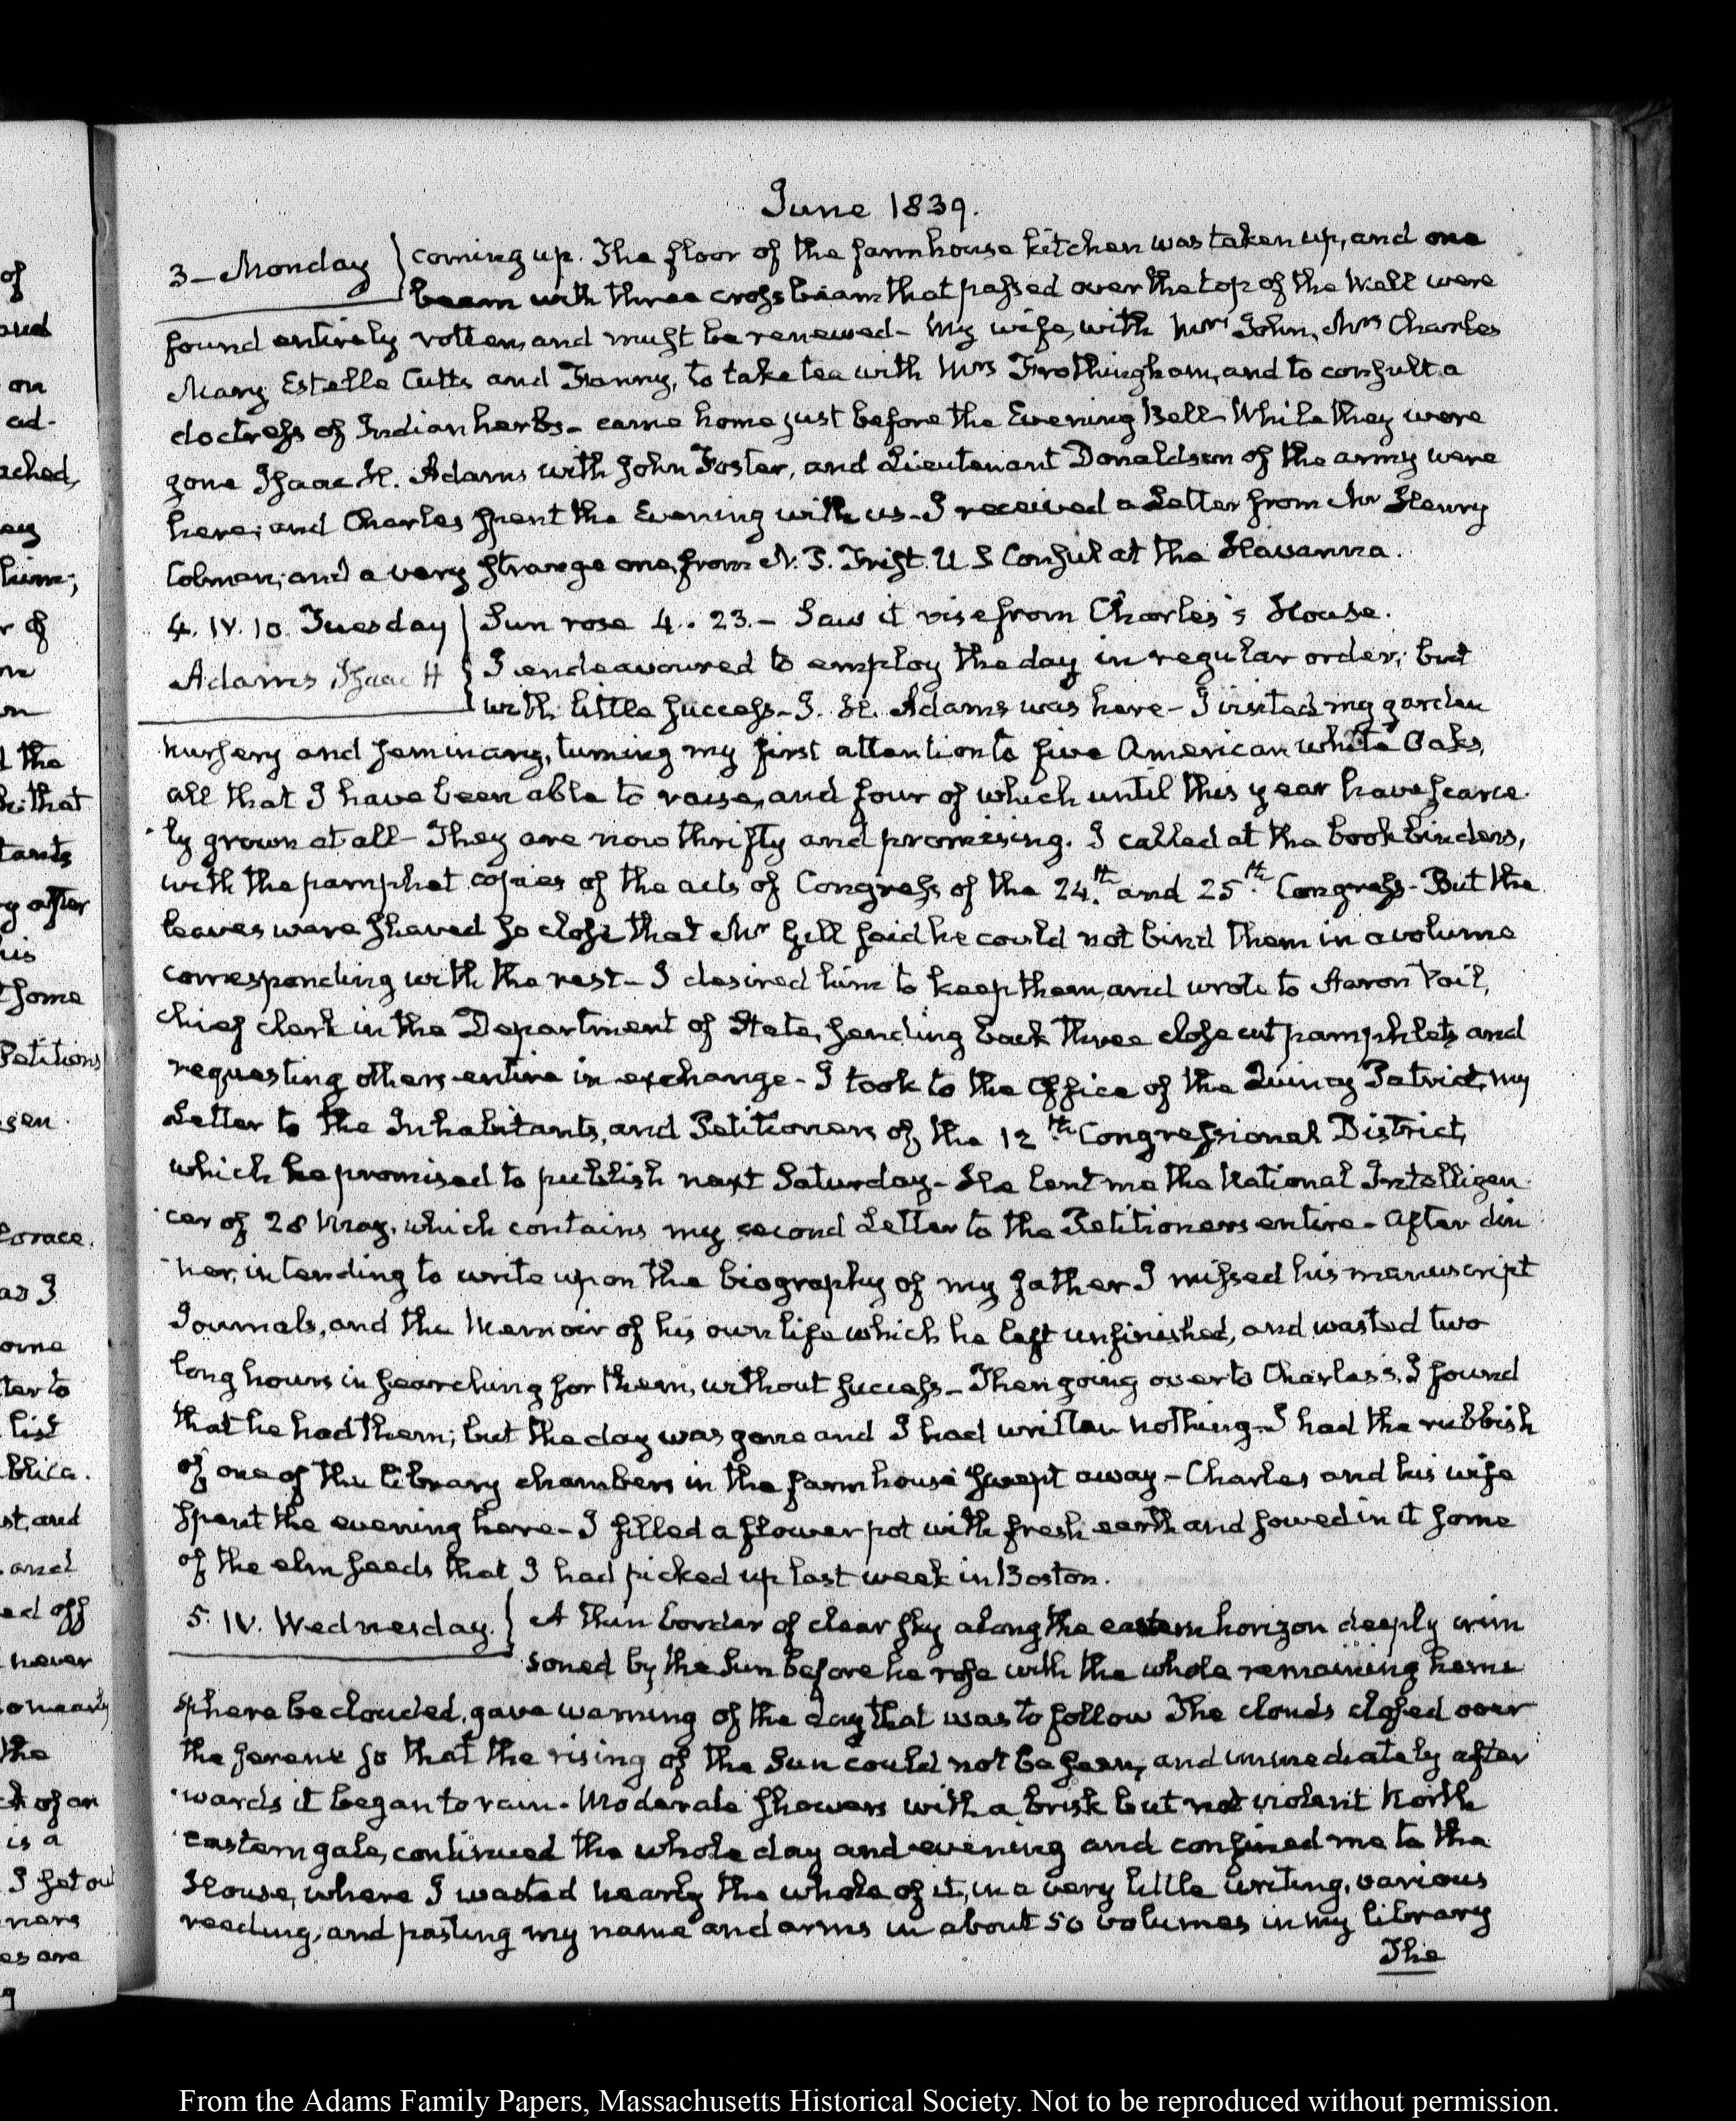 June 1839.
3 – Monday } coming up. The floor of the farm house kitchen was taken up, and one
beam with three cross beams that passed over the top of the Wall were
found entirely rotten, and must be renewed – My wife, with Mrs John, Mrs Charles
Mary Estelle Cutts and Fanny, to take tea with Mrs Frothingham, and to consult a
doctress of Indian herbs – came home just before the Evening Bell – While they were
gone Isaac H. Adams with John Foster, and Lieutenant Donaldson of the army were
here; and Charles spent the Evening with us – I received a Letter from Mr Henry
Colman; and a very strange one, from N. P. Trist. U S Consul at the Havanna.
4. IV. 10. Tuesday } Sun rose 4.. 23. – Saw it rise from Charles's House.
Adams Isaac H } I endeavoured to employ the day in regular order; but
with little success – I. H. Adams was here – I visited my garden
nursery and seminary, turning my first attention to five American white Oaks,
all that I have been able to raise, and four of which until this year have scarce-
ly grown at all – They are now thrifty and promising. I called at the book binders,
with the pamphlet copies of the acts of Congress of the 24.th and 25.th Congress – But the
leaves were shaved so close that Mr Gill said he could not bind them in a volume
corresponding with the rest – I desired him to keep them, and wrote to Aaron Vail,
chief clerk in the Department of State, sending back three close cut pamphlets and
requesting others entire in exchange – I took to the Office of the Quincy Patriot, my
Letter to the Inhabitants, and Petitioners of, the 12th Congressional District,
which he promised to publish next Saturday – He lent me the National Intelligen-
cer of 28 May, which contains my second Letter to the Petitioners entire – After din
ner, intending to write upon the biography of my father I missed his manuscript
Journals, and the Memoir of his own life which he left unfinished, and wasted two
long hours in searching for them, without success – Then going over to Charles's, I found
that he had them; but the day was gone and I had written nothing – I had the rubbish
of one of the library chambers in the farm house swept away – Charles and his wife
spent the evening here – I filled a flower pot with fresh earth and sowed in it some
of the elm seeds that I had picked up last week in Boston.
5. IV. Wednesday. } A thin border of clear sky along the eastern horizon deeply crim
soned by the Sun before he rose with the whole remaining hemi
sphere beclouded, gave warning of the day that was to follow The clouds closed over
the serene so that the rising of the Sun could not be seen, and immediately after
wards it began to rain. Moderate showers with a brisk but not violent North
eastern gale, continued the whole day and evening and confined me to the
House, where I wasted nearly the whole of it, in a very little writing, various
reading, and pasting my name and arms in about 50 volumes in my library
The
From the Adams Family Papers, Massachusetts Historical Society. Not to be reproduced without permission.